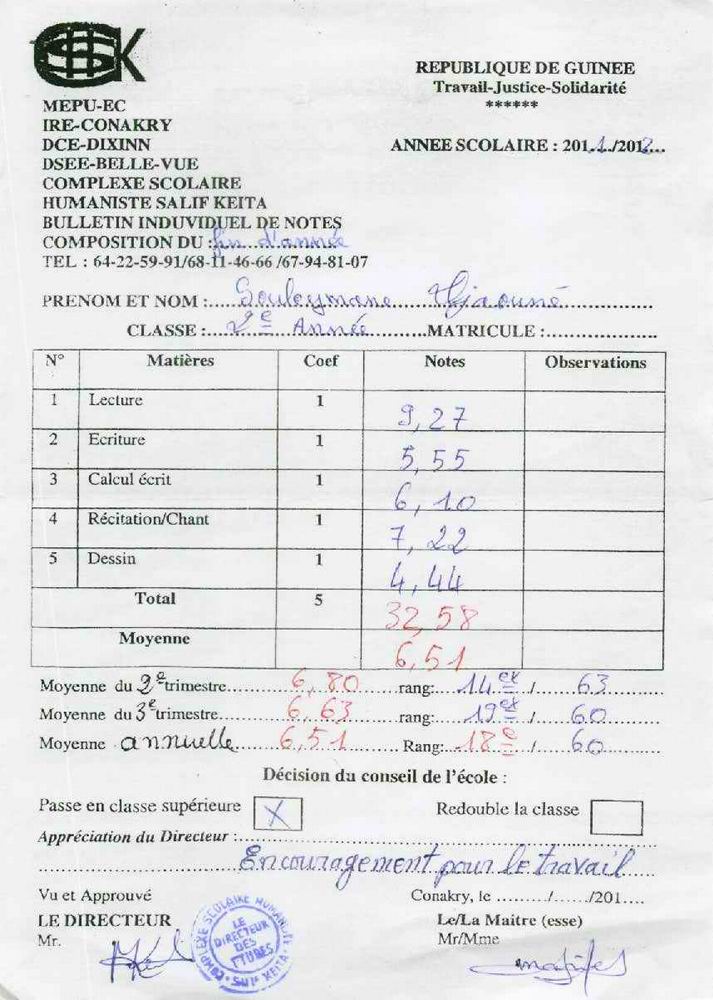 REPUBLIQUE DE GUINEE
Travail-Justice-Solidarité
******
MEPU-EC
IRE-CONAKRY
DCE-DIXINN
ANNEE SCOLAIRE : 201.1./2012...
DSEE-BELLE-VUE
COMPLEXE SCOLAIRE
HUMANISTE SALIF KEITA
BULLETIN INDUVIDUEL DE NOTES
COMPOSITION DU : fin d'année
TEL : 64-22-59-91/68-11-46-66 /67-94-81-07
PRENOM ET NOM : Souleymane
CLASSE : 2e Année MATRICULE :
N° Matières Coef Notes Observations
1 Lecture 1 9,27
2 Ecriture 1 5,55
3 Calcul écrit 1 6,10
4 Récitation/Chant 1 7,22
5 Dessin 1 4,44
Total 5 32,58
Moyenne 6,51
Moyenne du 2e trimestre 6,80 rang: 14ex / 63
Moyenne du 3e trimestre 6,63 rang: 19ex / 60
Moyenne annuelle 6,51 Rang: 18e / 60
Décision du conseil de l'école :
Passe en classe supérieure X Redouble la classe
Appréciation du Directeur :
Encouragement pour le travail
Vu et Approuvé Conakry, le ........./....../201....
LE DIRECTEUR Le/La Maitre (esse)
Mr. Mr/Mme
COMPLEXE SCOLAIRE HUMANISTE SALIF KEITA
LE
DIRECTEUR
DES
ETUDES